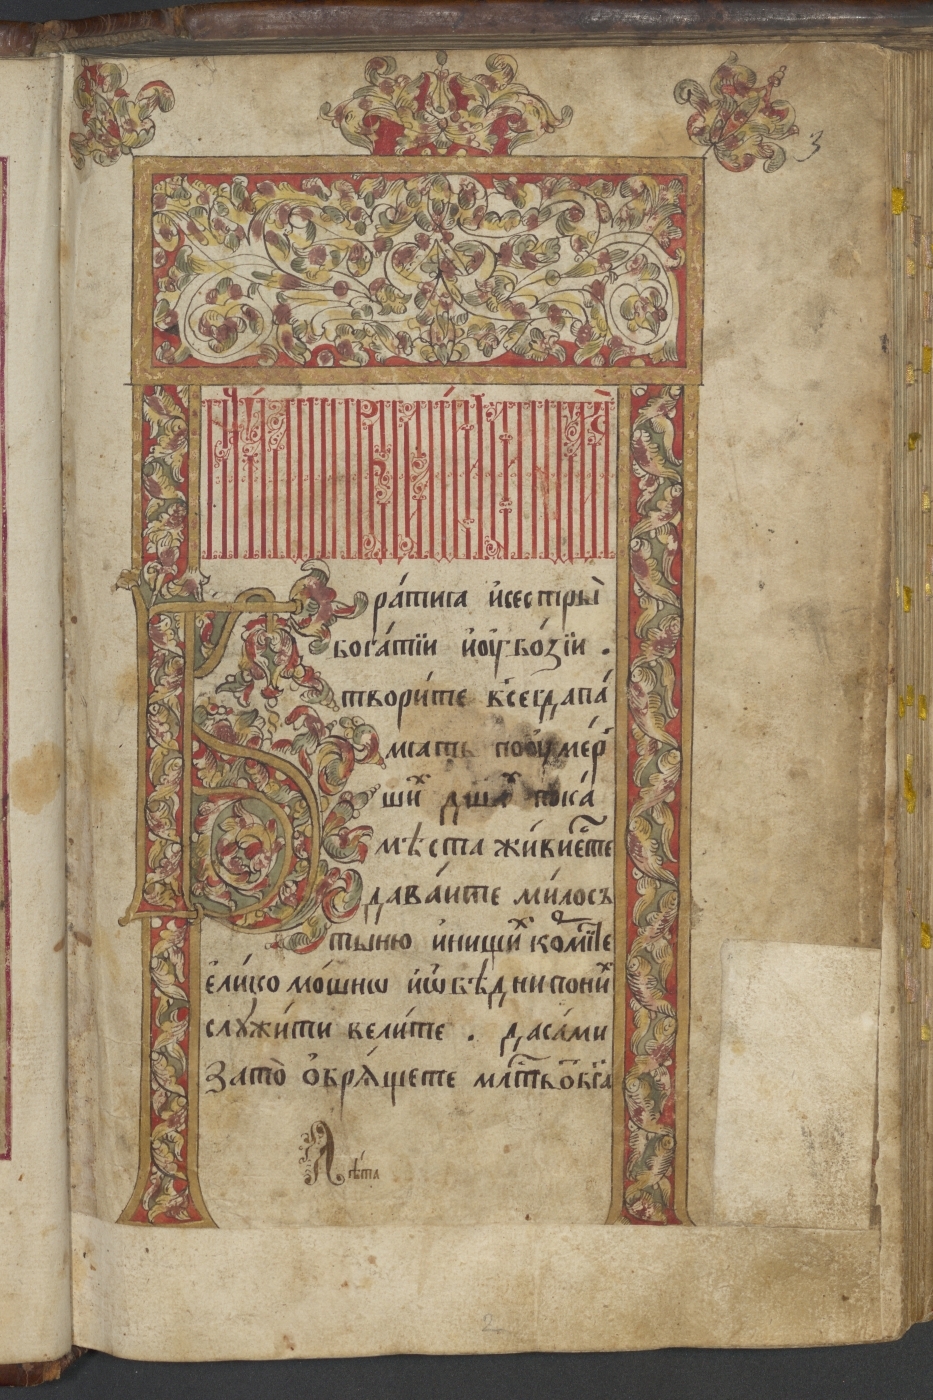 Бра́тиꙗ и҆сестры̀
бога́тїи и҆ᲂу҆бо́зїи .
твори́те всегдапа́
мꙗть поᲂу҆ме́р
шиⷯ дш҃аⷯ пока́
мѣста живие́те
дава́ите ми́лось
тыню и҆нищиⷯ
е҆ли́ко мо́шнѡ и҆ѡбѣднипониⷯ
слꙋжи́ти вели́те . даса́ми
зато̀ о҆брѧ́щете млⷭ҇тьѿбг҃а
Лѣ́та
3
2